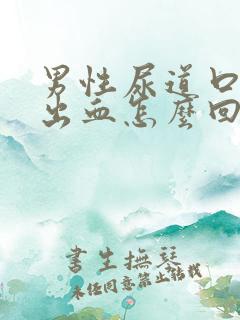 男性尿道口
出血怎麽回
書生撫琴
未经同意禁止转载